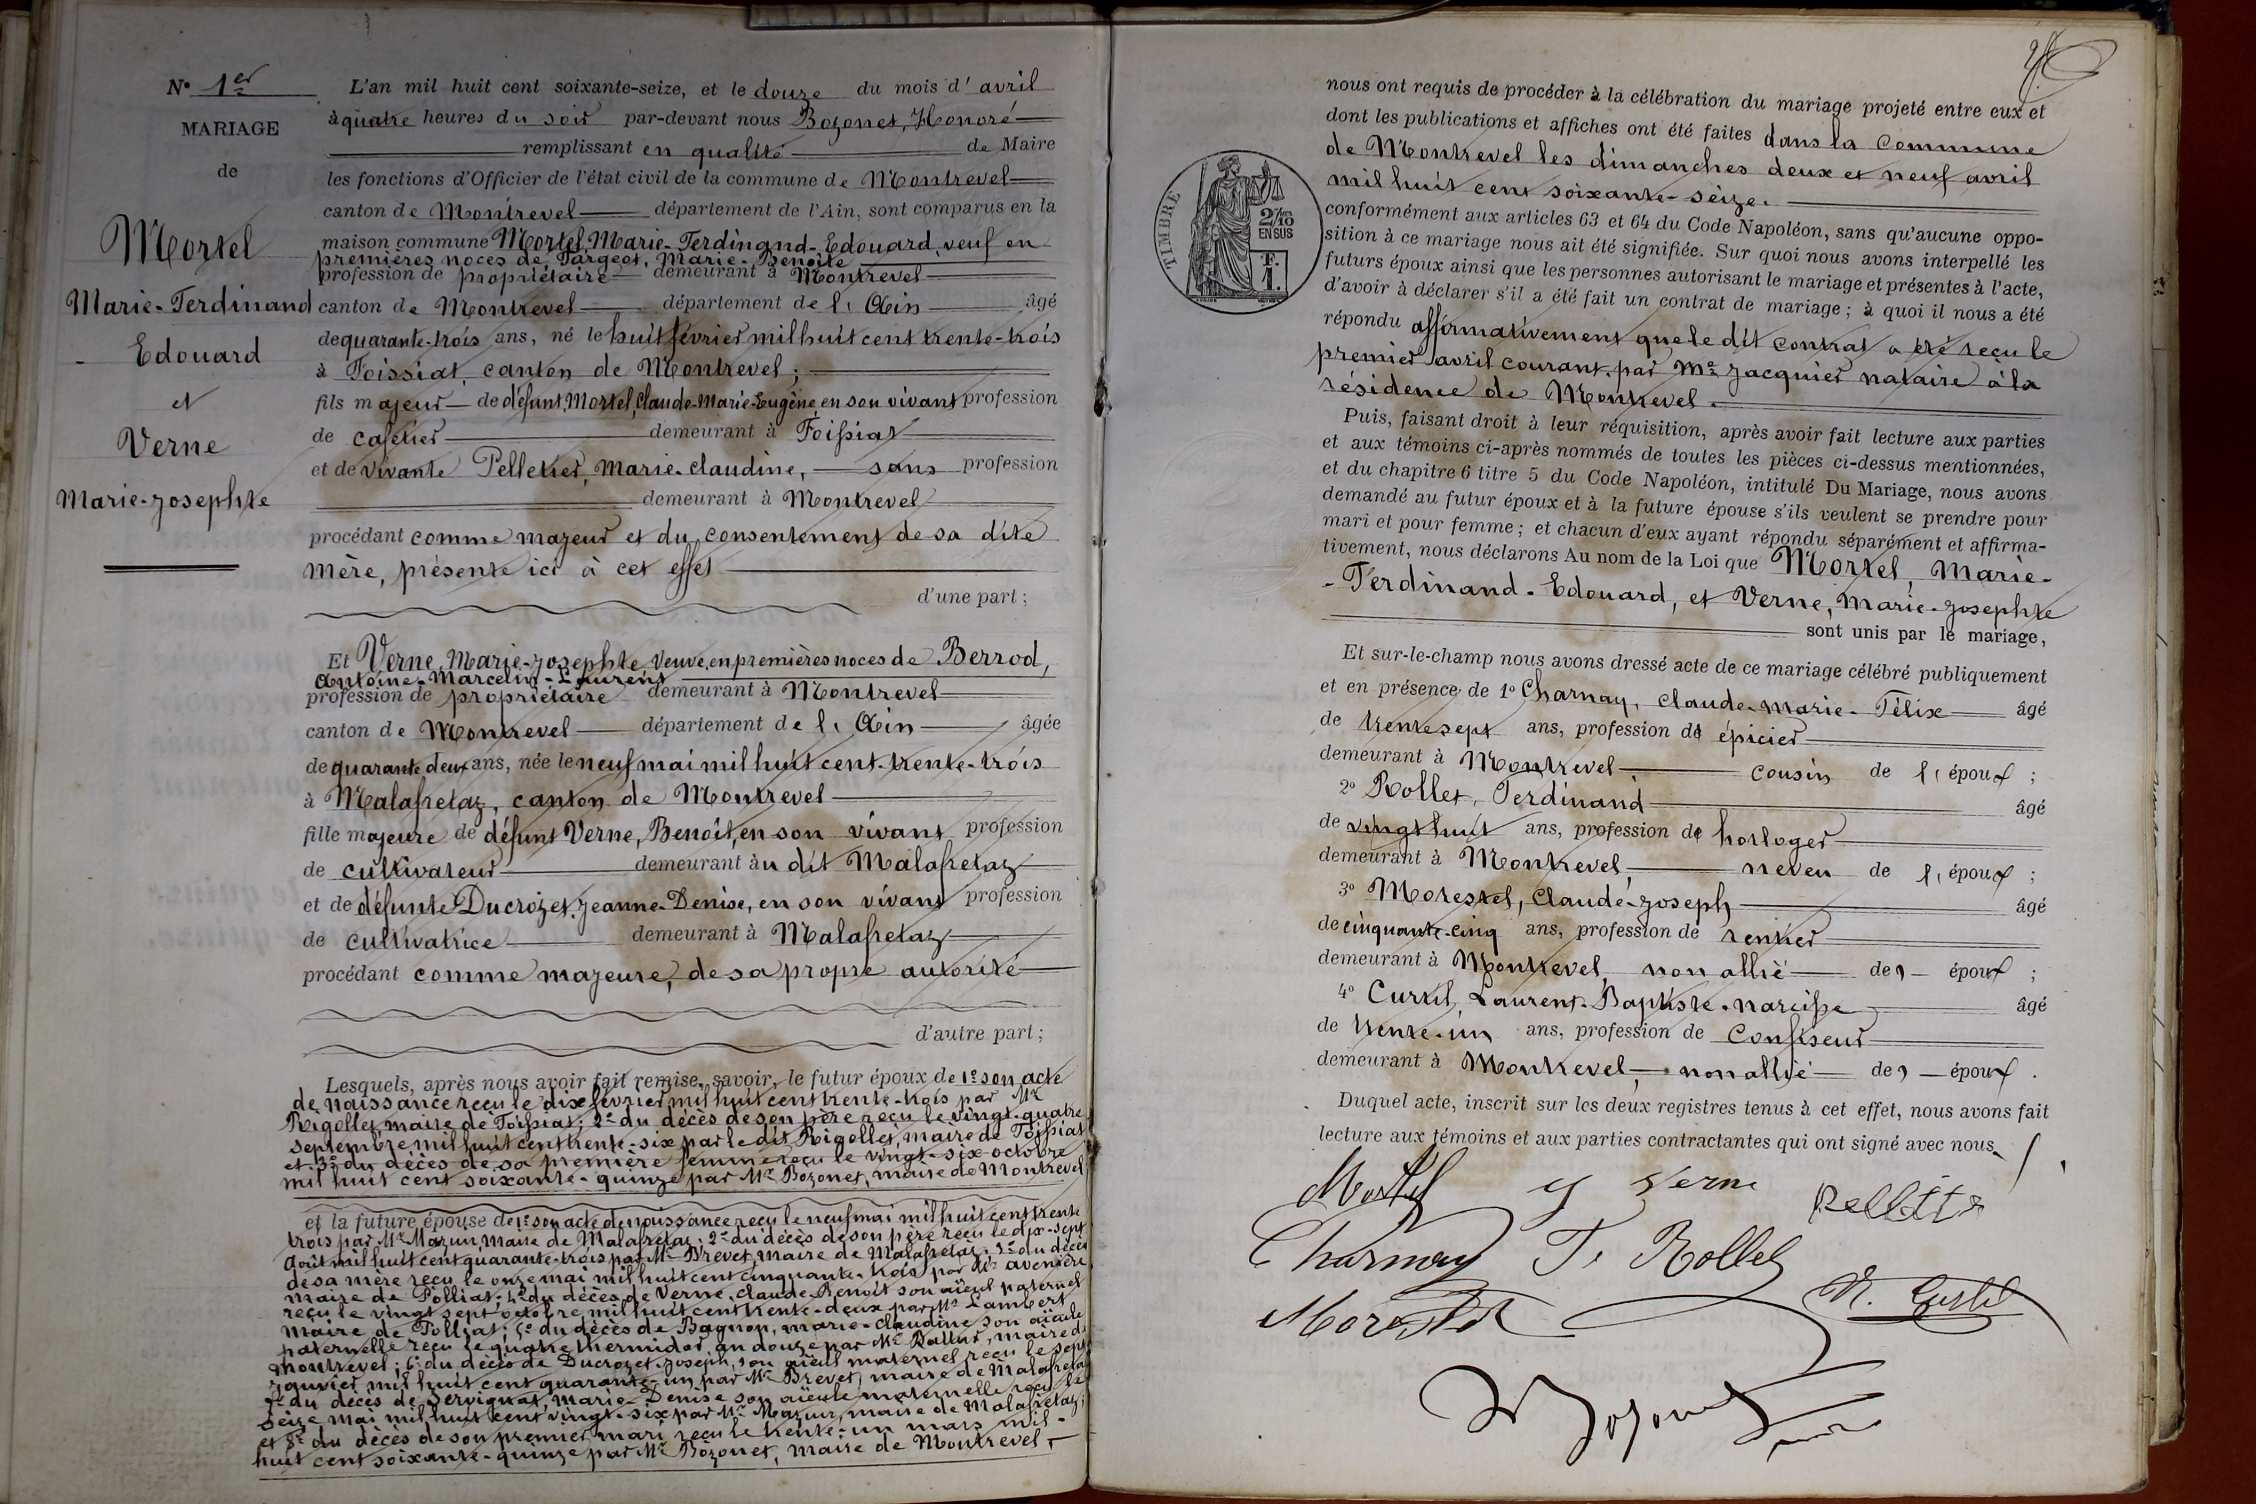 N° 1er
MARIAGE
de
Mortel
Marie-Ferdinand
- Edouard
et
Verne
Marie-Josephte
L'an mil huit cent soixante-seize, et le douze du mois d'avril
à quatre heures du soir par-devant nous Bozonet, Honoré
remplissant en qualité de Maire
les fonctions d'Officier de l'état civil de la commune de Montrevel
canton de Montrevel département de l'Ain, sont comparus en la
maison commune Mortel, Marie-Ferdinand-Edouard, veuf en
premières noces de Fargeot, Marie-Benoite
profession de propriétaire demeurant à Montrevel
canton de Montrevel département de l'Ain âgé
de quarante-trois ans, né le huit février mil huit cent trente-trois
à Foissiat, canton de Montrevel;
fils majeur de défunt Mortel, Claude-Marie-Eugène, en son vivant profession
de cafetier demeurant à Foissiat
et de vivante Pelletier, Marie-Claudine, sans profession
demeurant à Montrevel
procédant comme majeur et du consentement de sa dite
mère, présente ici à cet effet
d'une part;
Et Verne, Marie-Josephte, veuve, en premières noces de Berrod,
Antoine-Marcelin-Laurent
profession de propriétaire demeurant à Montrevel
canton de Montrevel département de l'Ain âgée
de quarante deux ans, née le neuf mai mil huit cent-trente-trois
à Malafretaz, canton de Montrevel
fille majeure de défunt Verne, Benoît, en son vivant profession
de cultivateur demeurant au dit Malafretaz
et de défunte Ducrozet, Jeanne-Denise, en son vivant profession
de cultivatrice demeurant à Malafretaz
procédant comme majeure, de sa propre autorité
d'autre part;
Lesquels, après nous avoir fait remise, savoir, le futur époux de 1° son acte
de naissance reçu le dix février mil huit cent trente-trois par Mr
Rigollet, maire de Foissiat; 2° du décès de son père reçu le vingt-quatre
septembre mil huit cent trente-six par le dit Rigollet, maire de Foissiat
et 3° du décès de sa première femme reçu le vingt-six octobre
mil huit cent soixante-quinze par Mr Bozonet, maire de Montrevel
et la future épouse de 1° son acte de naissance reçu le neuf mai mil huit cent trente
trois par Mr Mazuir, maire de Malafretaz; 2° du décès de son père reçu le dix-sept
août mil huit cent quarante-trois par Mr Brevet, maire de Malafretaz; 3° du décès
de sa mère reçu le onze mai mil huit cent cinquante-trois par Mr Avenière
maire de Polliat; 4° du décès de Verne, Claude-Benoît son aïeul paternel
reçu le vingt sept octobre mil huit cent trente-deux par Mr Lambert
maire de Polliat; 5° du décès de Bagnon, Marie-Claudine son aïeule
paternelle reçu le quatre thermidor an douze par Mr maire de
Montrevel; 6° du décès de Ducrozet, Joseph, son aïeul maternel reçu le sept
janvier mil huit cent quarante-un par Mr Brevet, maire de Malafretaz
7° du décès de Servignat, Marie-Denise son aïeule maternelle reçu le
seize mai mil huit cent vingt-six par Mr Mazuir, maire de Malafretaz;
et 8° du décès de son premier mari reçu le trente-un mars mil-
huit cent soixante-quinze par Mr Bozonet, maire de Montrevel
nous ont requis de procéder à la célébration du mariage projeté entre eux et
dont les publications et affiches ont été faites dans la commune
de Montrevel les dimanches deux et neuf avril
mil huit cent soixante-seize.
TIMBRE
2/10 EN SUS
F. 1.
conformément aux articles 63 et 64 du Code Napoléon, sans qu'aucune oppo-
sition à ce mariage nous ait été signifiée. Sur quoi nous avons interpellé les
futurs époux ainsi que les personnes autorisant le mariage et présentes à l'acte,
d'avoir à déclarer s'il a été fait un contrat de mariage; à quoi il nous a été
répondu affirmativement que le dit contrat a été reçu le
premier avril courant, par Me Jacquier notaire à la
résidence de Montrevel.
Puis, faisant droit à leur réquisition, après avoir fait lecture aux parties
et aux témoins ci-après nommés de toutes les pièces ci-dessus mentionnées,
et du chapitre 6 titre 5 du Code Napoléon, intitulé Du Mariage, nous avons
demandé au futur époux et à la future épouse s'ils veulent se prendre pour
mari et pour femme; et chacun d'eux ayant répondu séparément et affirma-
tivement, nous déclarons Au nom de la Loi que Mortel, Marie-
-Ferdinand-Edouard, et Verne, Marie-Josephte
sont unis par le mariage,
Et sur-le-champ nous avons dressé acte de ce mariage célébré publiquement
et en présence de 1° Charnay, Claude-Marie-Félix âgé
de trente sept ans, profession de épicier
demeurant à Montrevel, cousin de l'époux;
2° Rollet, Ferdinand âgé
de vingt huit ans, profession de horloger
demeurant à Montrevel, neveu de l'époux;
3° Morestel, Claude-Joseph âgé
de cinquante-cinq ans, profession de rentier
demeurant à Montrevel, non allié des époux;
4° Curtil, Laurent-Baptiste-Narcisse âgé
de trente-un ans, profession de confiseur
demeurant à Montrevel, non allié des époux.
Duquel acte, inscrit sur les deux registres tenus à cet effet, nous avons fait
lecture aux témoins et aux parties contractantes qui ont signé avec nous.
Mortel J Verne Pelletier
Charnay F. Rollet
Morestel N. Curtil
H Bozonet